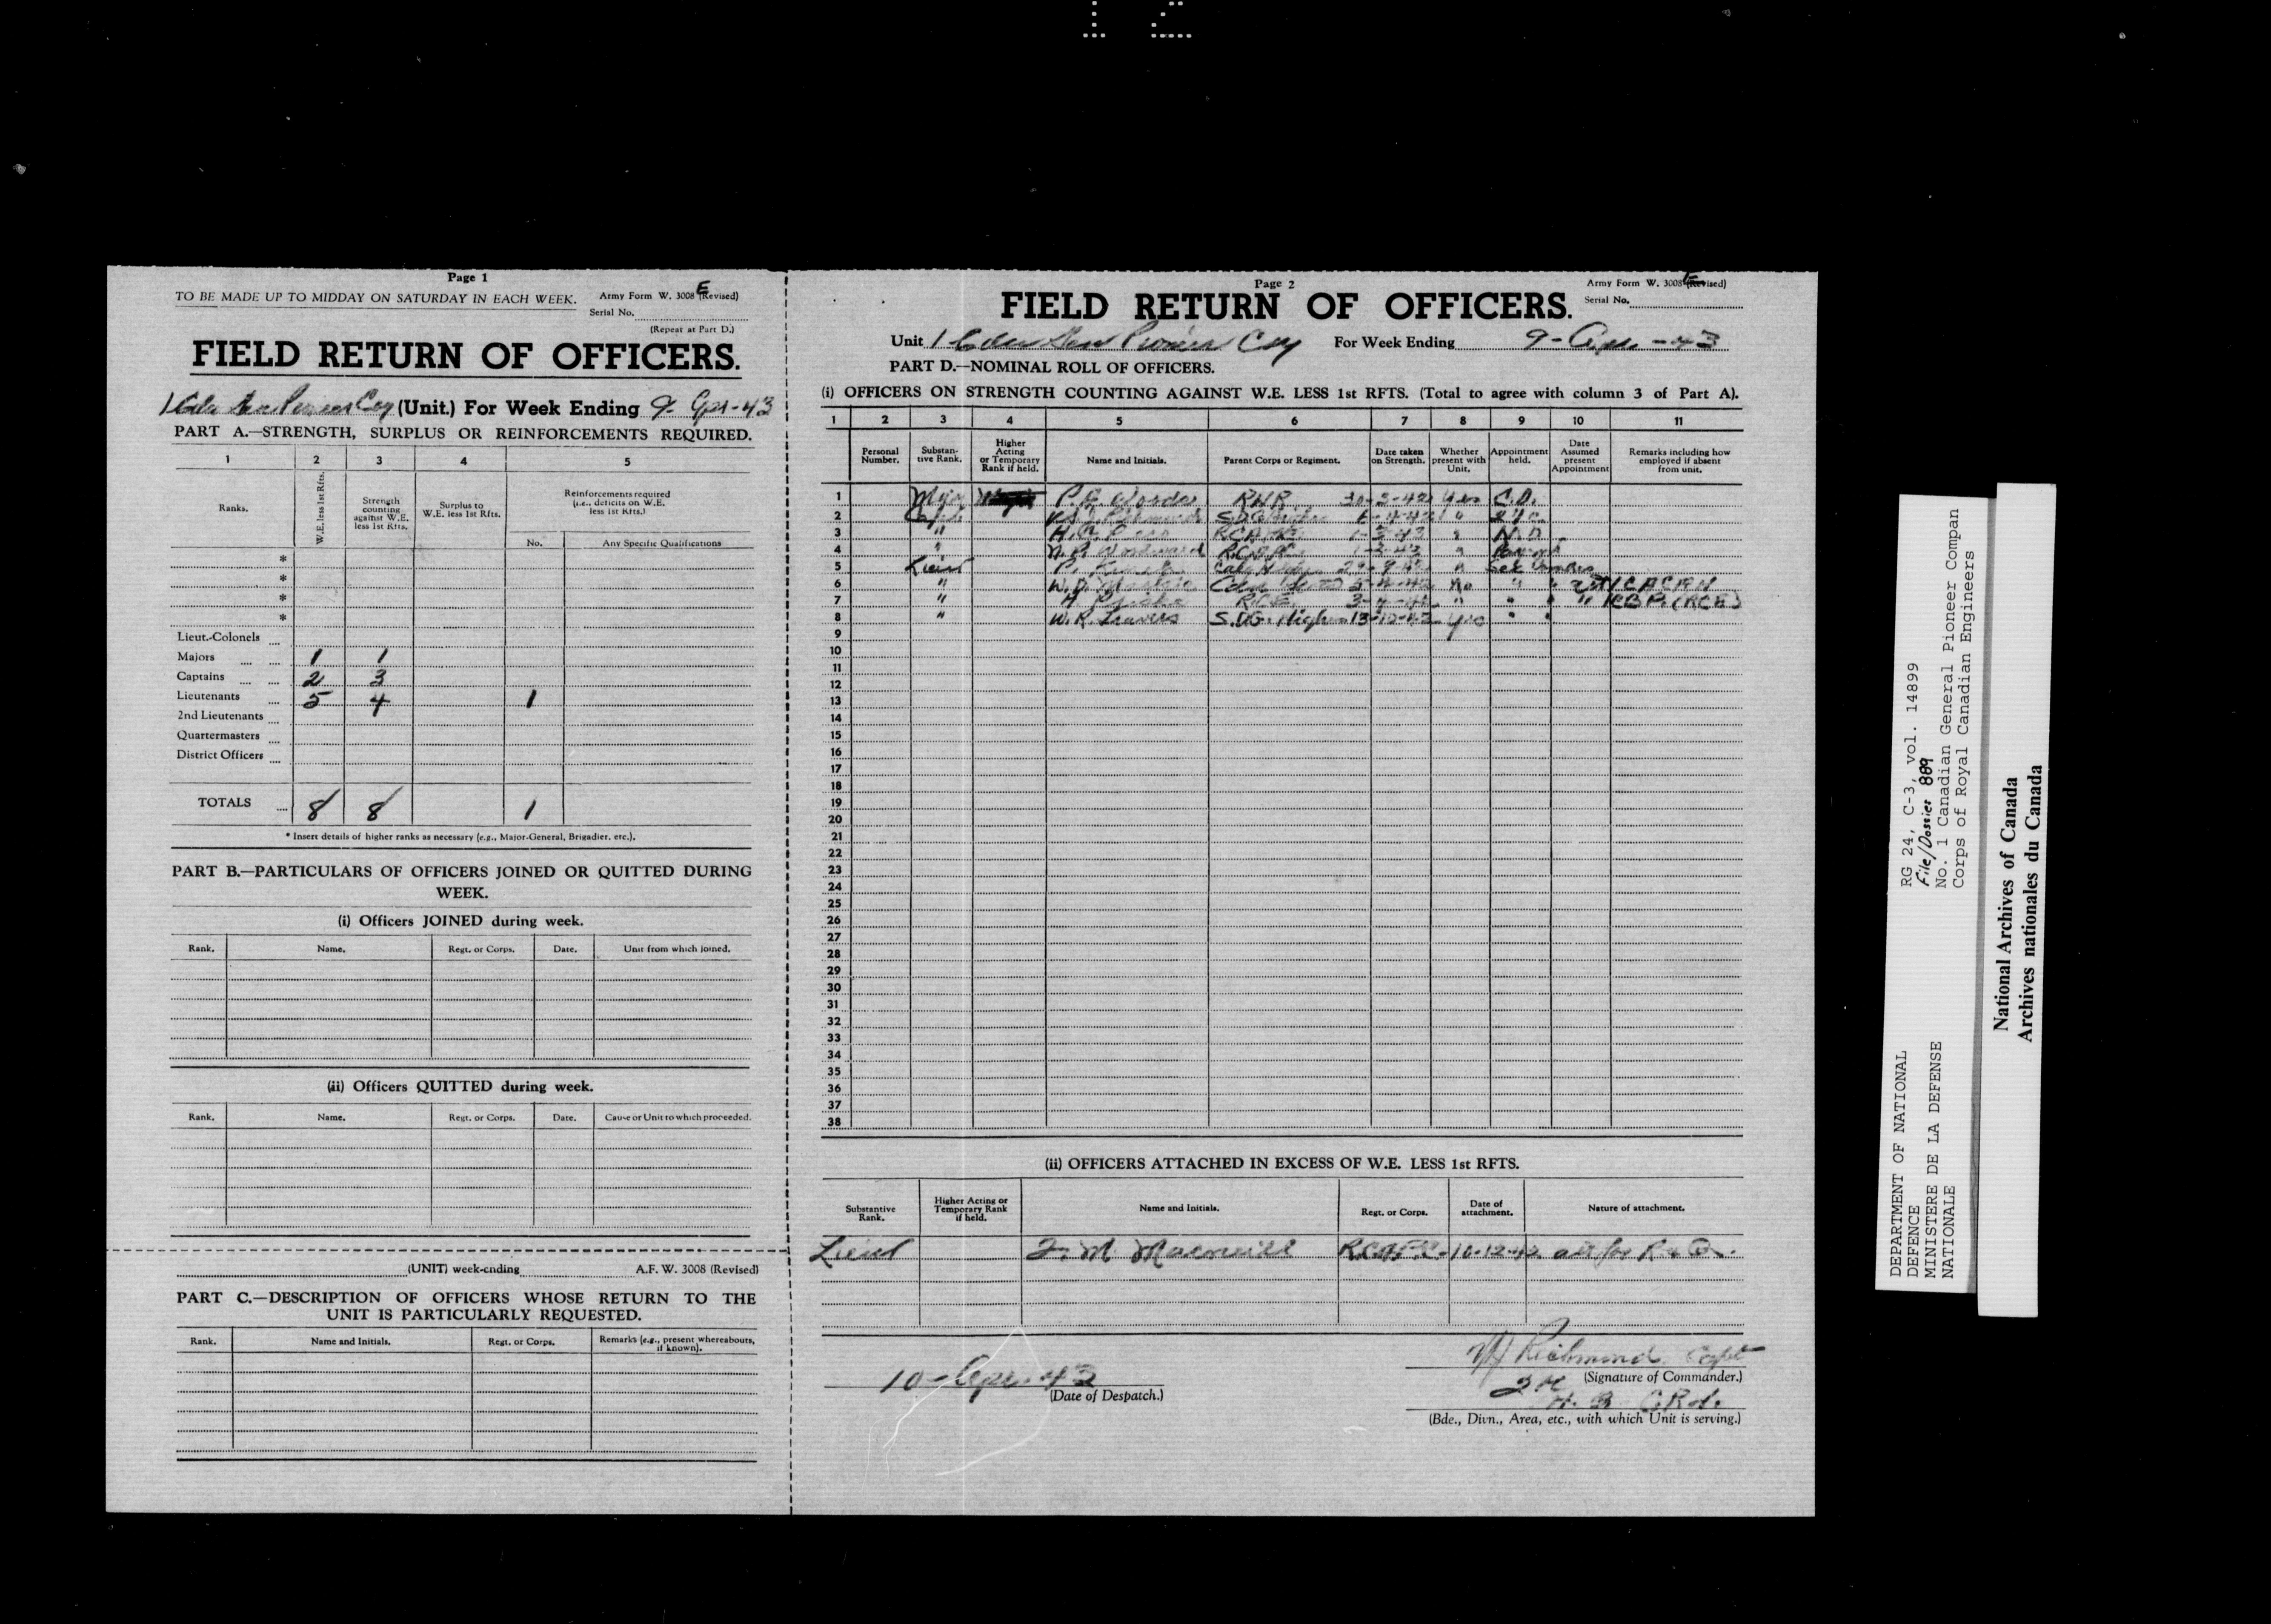 12
Page 1
TO BE MADE UP TO MIDDAY ON SATURDAY IN EACH WEEK. Army Form W. 3008 E (Revised)
Serial No.
(Repeat at Part D.)
FIELD RETURN OF OFFICERS.
1 Cdn Gen Pioneer Coy (Unit.) For Week Ending 9-Apr-43
PART A.—STRENGTH, SURPLUS OR REINFORCEMENTS REQUIRED.
1 2 3 4 5
Ranks. W.E. less 1st Rfts. Strength counting against W.E. less 1st Rfts. Surplus to W.E. less 1st Rfts. Reinforcements required (i.e., deficits on W.E. less 1st Rfts.)
No. Any Specific Qualifications
*
*
*
*
Lieut.-Colonels ....
Majors .... .... 1 1
Captains .... .... 2 3
Lieutenants .... 5 4 1
2nd Lieutenants ....
Quartermasters ....
District Officers ....
TOTALS .... 8 8 1
* Insert details of higher ranks as necessary (e.g., Major-General, Brigadier, etc.).
PART B.—PARTICULARS OF OFFICERS JOINED OR QUITTED DURING
WEEK.
(i) Officers JOINED during week.
Rank. Name. Regt. or Corps. Date. Unit from which joined.
(ii) Officers QUITTED during week.
Rank. Name. Regt. or Corps. Date. Cause or Unit to which proceeded.
(UNIT) week-ending A.F. W. 3008 (Revised)
PART C.—DESCRIPTION OF OFFICERS WHOSE RETURN TO THE
UNIT IS PARTICULARLY REQUESTED.
Rank. Name and Initials. Regt. or Corps. Remarks (e.g., present whereabouts, if known).
Page 2
Army Form W. 3008 E (Revised)
Serial No.
FIELD RETURN OF OFFICERS.
Unit 1 Cdn Gen Pioneer Coy For Week Ending 9-Apr-43
PART D.—NOMINAL ROLL OF OFFICERS.
(i) OFFICERS ON STRENGTH COUNTING AGAINST W.E. LESS 1st RFTS. (Total to agree with column 3 of Part A).
1 2 3 4 5 6 7 8 9 10 11
Personal Number. Substantive Rank. Higher Acting or Temporary Rank if held. Name and Initials. Parent Corps or Regiment. Date taken on Strength. Whether present with Unit. Appointment held. Date Assumed present Appointment Remarks including how employed if absent from unit.
1 Major RNR Yes
2 Capt "
3 " "
4 " N.P. Woodward "
5 Lieut P. "
6 " W.D. No " "
7 " H. RCE " " " "
8 " W.R. Travers S.D.G. Highrs 13-10-42 Yes " "
9
10
11
12
13
14
15
16
17
18
19
20
21
22
23
24
25
26
27
28
29
30
31
32
33
34
35
36
37
38
(ii) OFFICERS ATTACHED IN EXCESS OF W.E. LESS 1st RFTS.
Substantive Rank. Higher Acting or Temporary Rank if held. Name and Initials. Regt. or Corps. Date of attachment. Nature of attachment.
Lieut M. Macneill 10-12-42 att for R & Q.
10-Apr-43
(Date of Despatch.)
Richmond Capt
(Signature of Commander.)
(Bde., Divn., Area, etc., with which Unit is serving.)
RG 24, C-3, vol. 14899
File/Dossier 889
No. 1 Canadian General Pioneer Compan
Corps of Royal Canadian Engineers
DEPARTMENT OF NATIONAL
DEFENCE
MINISTERE DE LA DEFENSE
NATIONALE
National Archives of Canada
Archives nationales du Canada